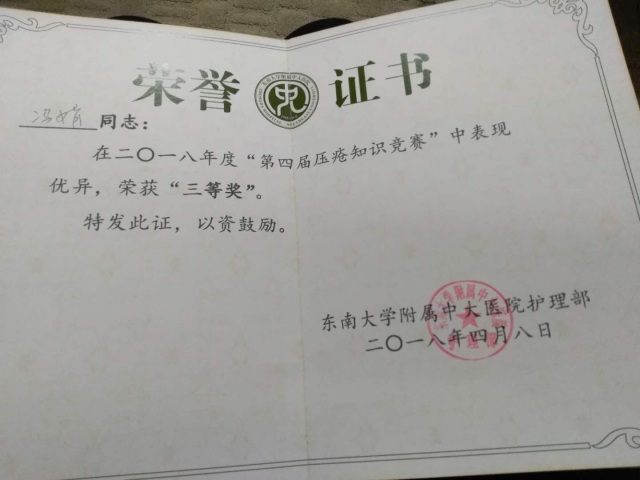 荣誉证书
冯娟同志：
在二〇一八年度“第四届压疮知识竞赛”中表现
优异，荣获“三等奖”。
特发此证，以资鼓励。
东南大学附属中大医院护理部
二〇一八年四月八日